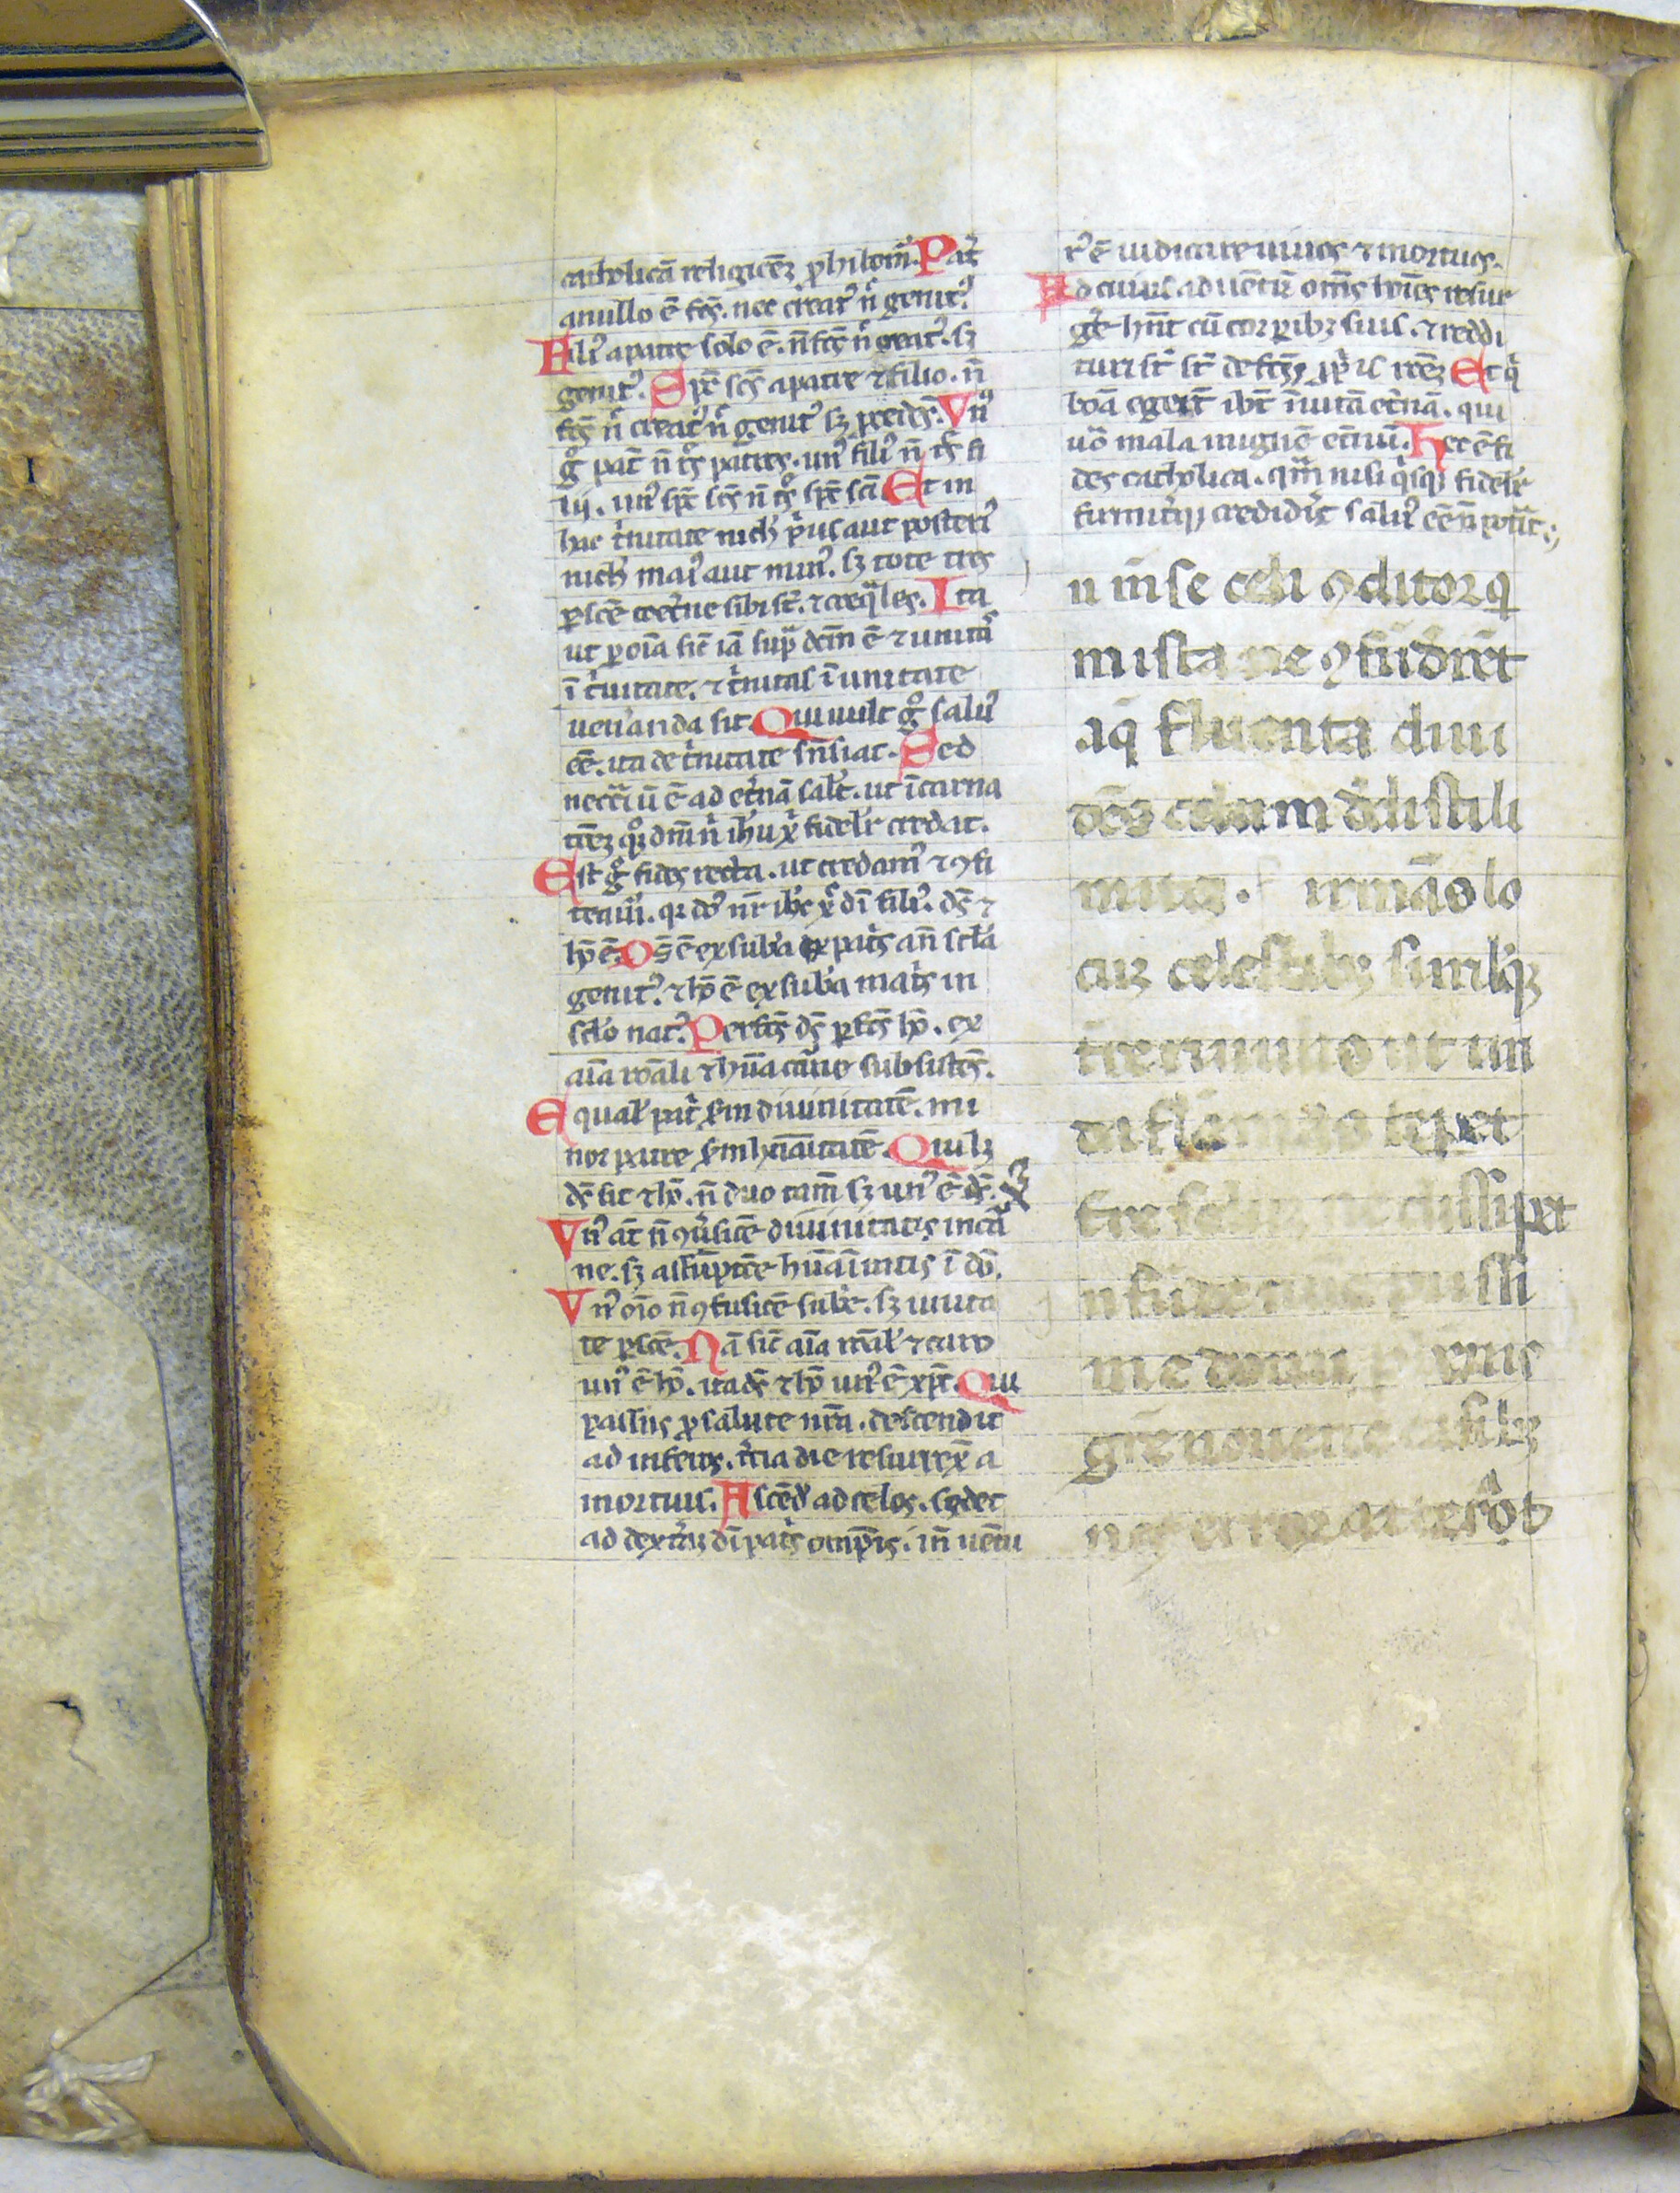 catholicā religiōeꝫ ꝓhibem̄. Pat̄
a nullo ē fc̄s. nec creatꝰ n̄ genitꝰ.
Filiꝰ a patre solo ē. n̄ fc̄s n̄ creatꝰ. sꝫ
genitꝰ. Sp̄c sc̄s a patre ⁊ filio. n̄
fc̄s n̄ creatꝰ n̄ genitꝰ sꝫ ꝓcedēs. Vnꝰ
gͦ pat̄ n̄ tres patres. unꝰ filiꝰ n̄ tres fi
lij. unꝰ sp̄c sc̄s n̄ tres sp̄c sc̄i Et in
hac t̄nitate nich̄ pͥus aut posteriꝰ
nich̄ maiꝰ aut minꝰ. sꝫ tote tres
ꝑsōe coet̄ne sibi st̄. ⁊ coeq̄les. Ita
ut ꝑ oīa sic̄ iā sup̄ dc̄m ē ⁊ unitas
ī t̄nitate. ⁊ t̄nitas ī unitate
uen̄anda sit. Qui uult gͦ saluꝰ
eē. ita de t̄nitate sēn̄tiat. Sed
neccāriū ē ad et̄nā salt̄. ut īcarna
tōeꝫ qͦꝫ dn̄i n̄ri ih̄u xͥ fidelr̄ credat.
Est gͦ fides recta. ut credamꝰ ⁊ ꝯfi
team̄. qꝛ dn̄s nr̄ ih̄c xͨ dī filiꝰ. ds̄ ⁊
hō ē. Ds̄ ē ex sub̄a patͥs an̄ sc̄la
genitꝰ. ⁊ hō ē ex sub̄a matͥs in
sc̄lo natꝰ. Perfc̄s ds̄ ꝑfc̄s hō. ex
aīa rōnali ⁊ hūana carne subsistēs.
Equal̄ patͥ sc̄dm diuinitatē. mi
nor patre sc̄dm hūanitatē. Qui lꝫ
ds̄ sit ⁊ hō. n̄ duo tam̄ sꝫ unꝰ ē xͨ.
Vnꝰ at̄ n̄ ꝯu̇sioē diuinitatis in car
ne. sꝫ assūptiōe hūanitatis ī dō.
Vnꝰ oīo n̄ ꝯfusiōe sub̄e. sꝫ unita
te ꝑsōe. Nā sic̄ aīa rōnal̄ ⁊ caro
unꝰ ē hō. ita ds̄ ⁊ hō unꝰ ē xp̄c. Qui
passus ꝓ salute nr̄a. descendit
ad inferos. t̄cia die resurrex̄ a
mortuis. Ascēd̄ ad celos. sedet
ad dexterā dī patͥs ompīs. in̄ uētu
rꝰ ē iudicare uiuos ⁊ mortuos.
Ad cuius aduentū om̄s hoīes resur
gē hn̄t cū corporibꝫ suis. ⁊ reddi
turi st̄ de fc̄is ꝓpͥis rōeꝫ Et qͥ
bona eger̄t ibt̄ ī uitā et̄nā. qui
uō mala in ignē et̄nū. Hec ē fi
des catholica. qm̄ nisi qͥsqꝫ fidelr̄
firmit̄qꝫ credid̄it saluꝰ eē n̄ pot̄it.
n īnse celi ꝯditor q
mista ne ꝯfūdrēt
aq̄ fluenta diui
dēs celum dedisti li
mitē. irmās lo
cū celestibꝫ simulqꝫ
t̄re riuulis ut un
da flāmas tēpet
t̄re solum ne dissipet
nfūde nūc pijssi
me donū p̄petis
grē noue ne casibꝫ
nos error atterat ob